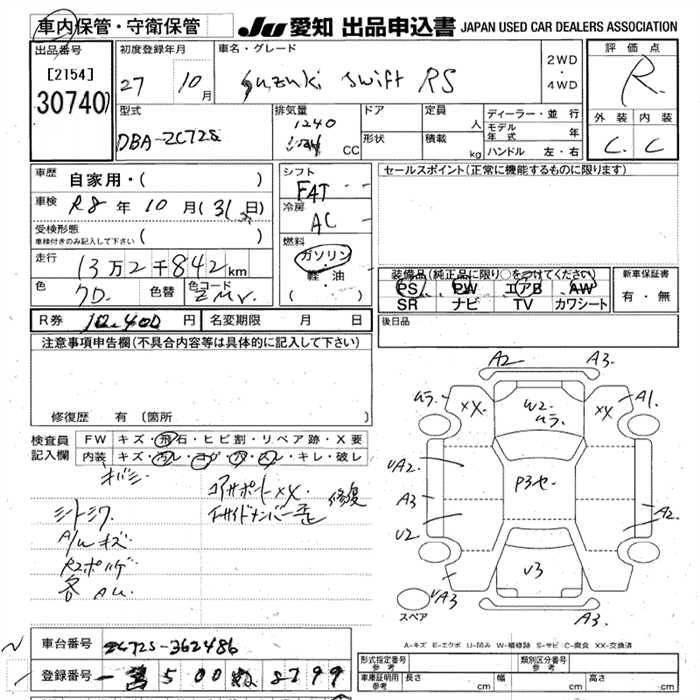 車内保管・守衛保管 JU 愛知 出品申込書 JAPAN USED CAR DEALERS ASSOCIATION
出品番号 初度登録年月 車名・グレード 2WD・4WD 評価点
[2154] 27 10月 suzuki swift RS R
30740 外装 内装
型式 排気量 ドア 定員 人 ディーラー・並行
DBA-ZC72S 1240 CC 形状 積載 kg モデル年式 年 C. C
ハンドル 左・右
車歴 自家用・( ) シフト セールスポイント(正常に機能するものに限ります)
車検 R8年10月(31日) FAT
受検形態 車検付きのみ記入して下さい ( ) 冷房 AC
走行 13万2千842km 燃料 ガソリン 軽油
装備品(純正品に限り○をつけてください) 新車保証書
色 色替 色コード PS PW エアB AW 有・無
SR ナビ TV カワシート
R券 円 名変期限 月 日 後日品
注意事項申告欄(不具合内容等は具体的に記入して下さい)
修復歴 有(箇所
検査員記入欄 FW キズ・飛石・ヒビ割・リペア跡・X要
内装 キズ・汚レ・コゲ・穴・スレ・キレ・破レ
コアサポートXX. 修復
シートシワ
A/Wキズ
各AU.
A2 A3.
ムラ. XX. W2 ムラ XX A1.
UA2. P3セ
A3 A2.
U2.
U3
UA3 A3.
スペア
A-キズ E-エクボ U-凹み W-補修跡 S-サビ C-腐食 XX-交換済
車台番号 ZC72S-362486
登録番号 500 8799
形式指定番号 参考 類別区分番号 参考
車庫証明用 参考 長さ cm 幅 cm 高さ cm